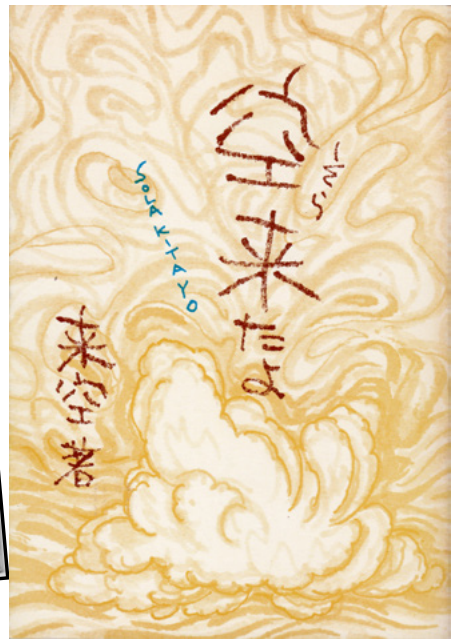 空来だよ
SOLA KITAYO
来空著